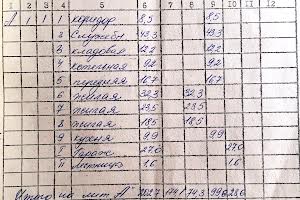 1 2 3 4 5 6 7 8 9 10 11 12
А 1 1 1 коридор 8,5 8,5
2 Служебн 43,3 43,3
3 кладовая 12,2 12,2
4 котельная 9,2 9,2
5 передняя 16,7 16,7
6 жилая 32,3 32,3
7 жилая 23,5 23,5
8 жилая 18,5 18,5
9 кухня 9,9 9,9
I Гараж 27,0 27,0
II Лестница 1,6 1,6
Итого на лит. "А" 202,7 174,1 74,3 99,8 28,6